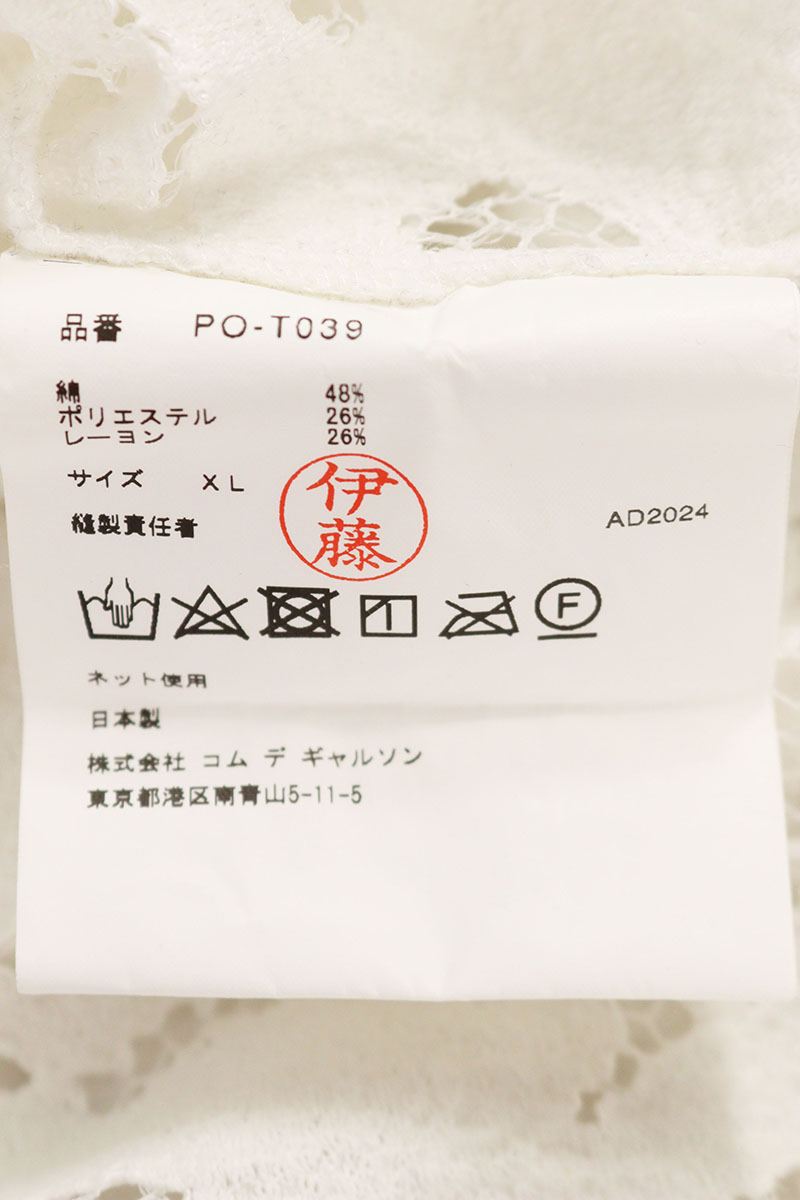 品番 PO-T039
綿 48%
ポリエステル 26%
レーヨン 26%
サイズ XL
縫製責任者 伊藤
AD2024
F
ネット使用
日本製
株式会社 コム デ ギャルソン
東京都港区南青山5-11-5